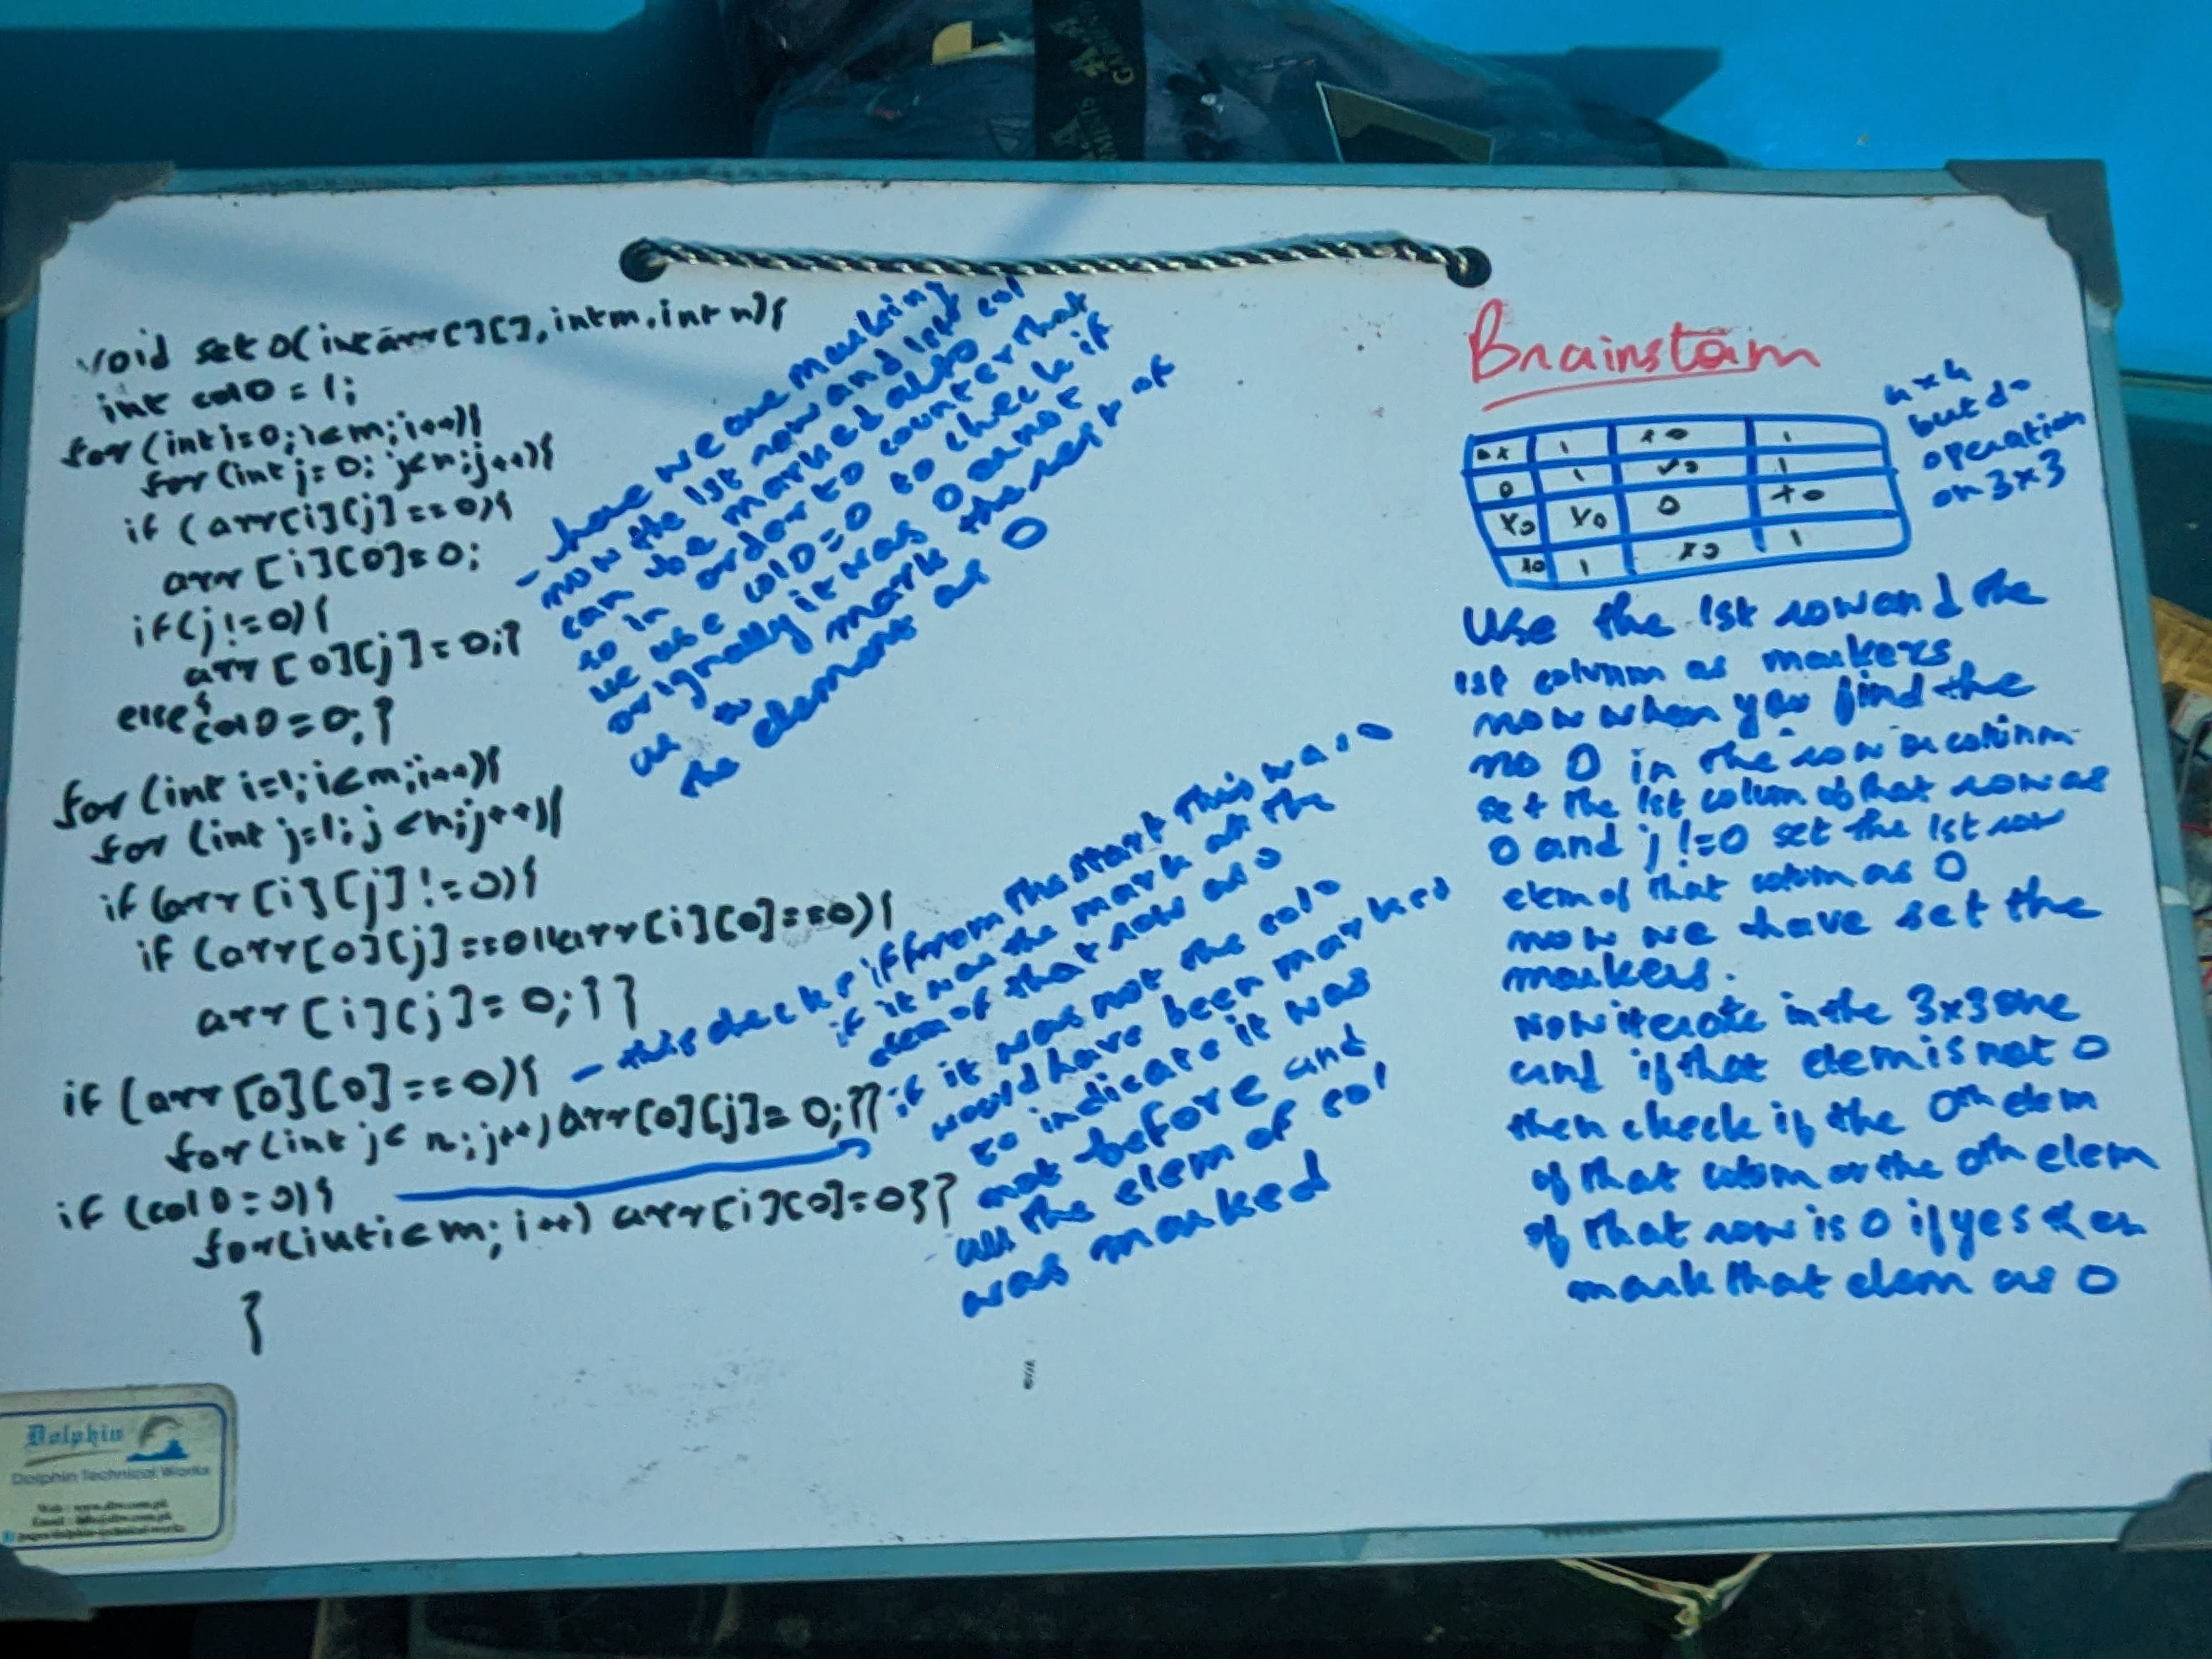 void set0(int arr[][], int m, int n){
int col0 = 1;
for(int i=0; i<m; i++){
for(int j=0; j<n; j++){
if (arr[i][j]==0){
arr[i][0]=0;
if(j!=0){
arr[0][j]=0;}
else{
col0=0;}
for(int i=1; i<m; i++){
for(int j=1; j<n; j++){
if(arr[i][j]!=0){
if(arr[0][j]==0||arr[i][0]==0){
arr[i][j]=0;}}
if(arr[0][0]==0){
for(int j<n; j++) arr[0][j]=0;}}
if(col0=0){
for(int i<m; i++) arr[i][0]=0}}
}
- here we are marking
now the 1st row and 1st col
can be marked also
so in order to counter that
we use col0=0 to check if
orignally it was 0 or not
the rest of
the elemens as 0
- this checks if from the start this was 0
if it was the mark all the
elem of that row as 0
if it was not the col0
would have been marked
to indicate it was
not before and
all the elem of col
was marked
Brainstom
4x4
but do
operation
on 3x3
1 1
0 1 1
0
1 1
Use the 1st row and the
1st column as markers
now when you find the
no 0 in the row or column
set the 1st colum of that row as
0 and j!=0 set the 1st row
elem of that colum as 0
now we have set the
markers.
now iterate in the 3x3 one
and if that elem is not 0
then check if the 0th elem
of that colum or the 0th elem
of that row is 0 if yes then
mark that elem as 0
Dolphin
Dolphin Technical Works